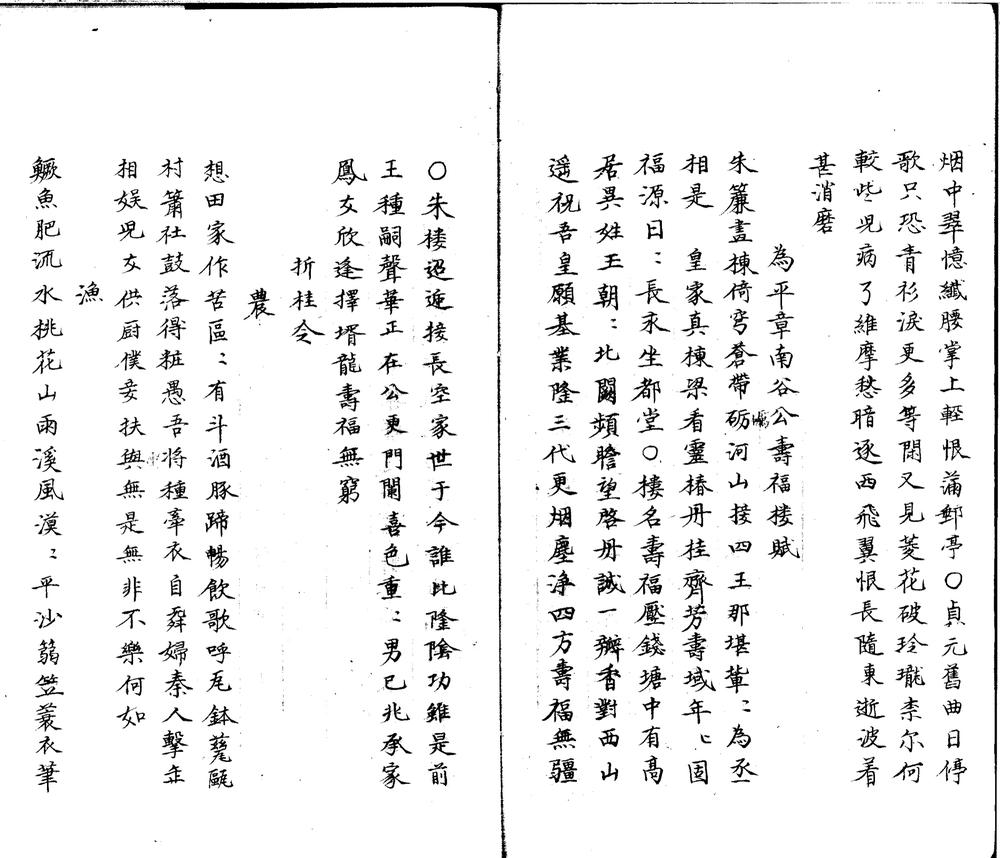 烟中翠憶纖腰掌上輕恨滿郵亭〇貞元舊曲日停
歌只恐青衫淚更多等閑又見菱花破玲瓏柰尔何
較些兒病了維摩愁暗逐西飛翼恨長隨東逝波着
甚消磨
為平章南谷公壽福楼賦
朱簾畫棟倚穹蒼帶砺河山接四王那堪輩〻為丞
相是　皇家真棟梁看靈椿丹桂齊芳壽域年〻固
福源日〻長永坐都堂〇樓名壽福壓錢塘中有高
居異姓王朝〻北闕頻瞻望啓丹誠一瓣香對西山
遥祝吾皇願基業隆三代更烟塵淨四方壽福無疆
〇朱楼迢遞接長空家世于今誰比隆陰功雖是前
王種嗣聲華正在公更門闌喜色重〻男已兆承家
鳳女欣逢擇壻龍壽福無窮
折桂令
農
想田家作苦區〻有斗酒豚蹄暢飲歌呼瓦鉢甆甌
村簫社鼓落得粧愚吾将種牽衣自舜婦秦人擊缶
相娱兒女供厨僕妾扶與無是無非不樂何如
漁
鱖魚肥流水桃花山雨溪風漠〻平沙篛笠蓑衣筆